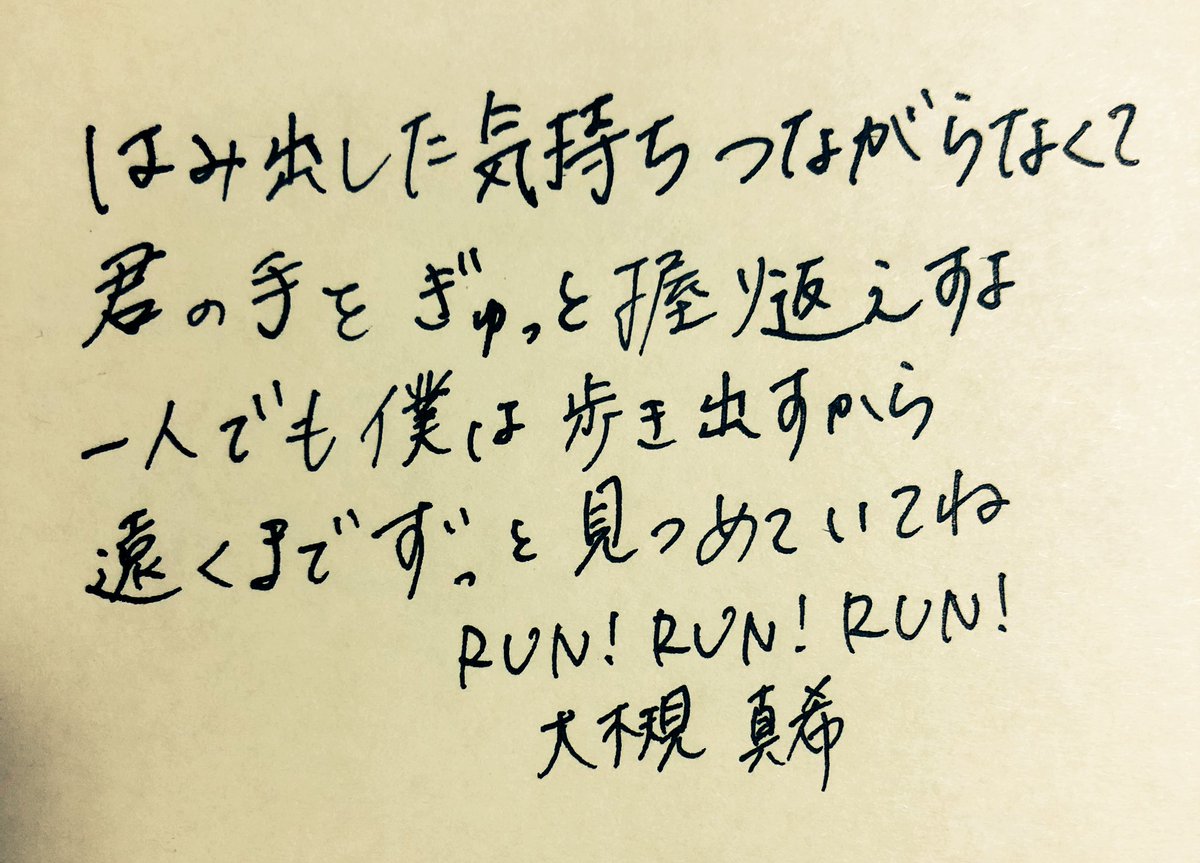 はみ出した気持ちつながらなくて
君の手をぎゅっと握り返えすよ
一人でも僕は歩き出すから
遠くまでずっと見つめていてね
RUN! RUN! RUN!
大槻 真希